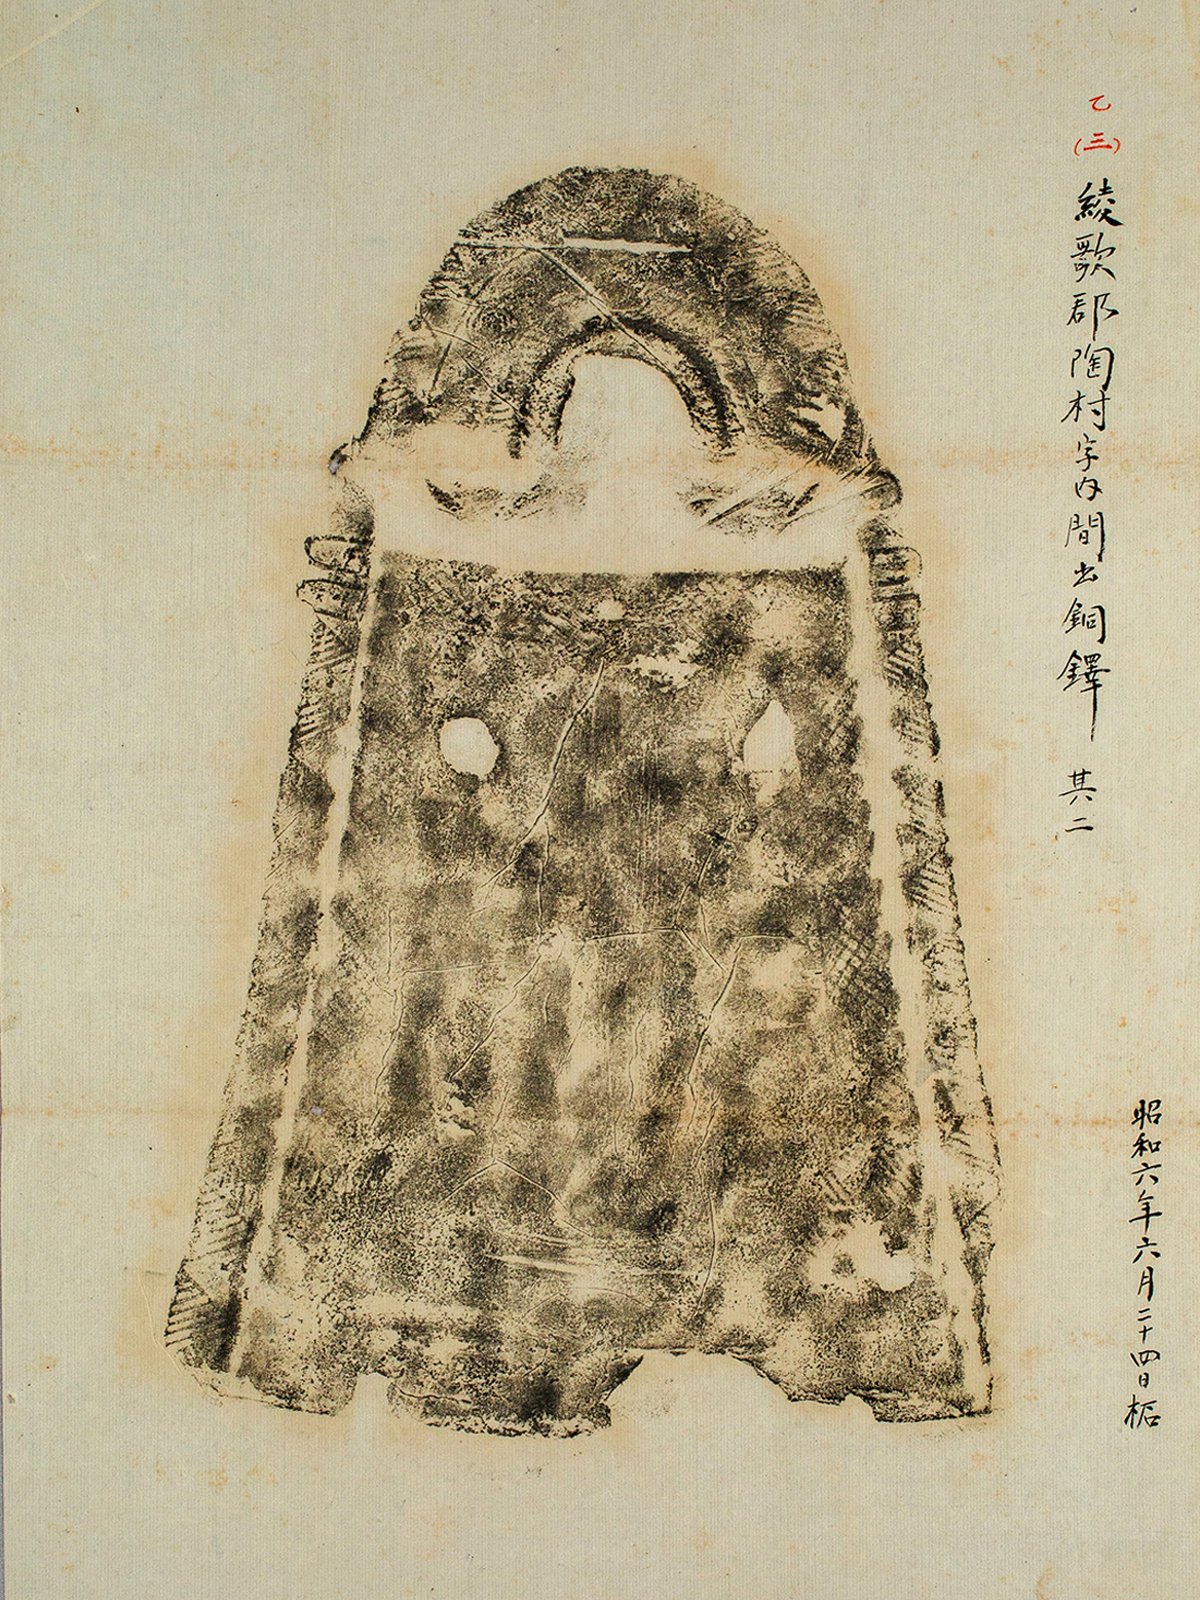 乙
(三)
綾歌郡陶村字内間出銅鐸 其二
昭和六年六月二十四日栃